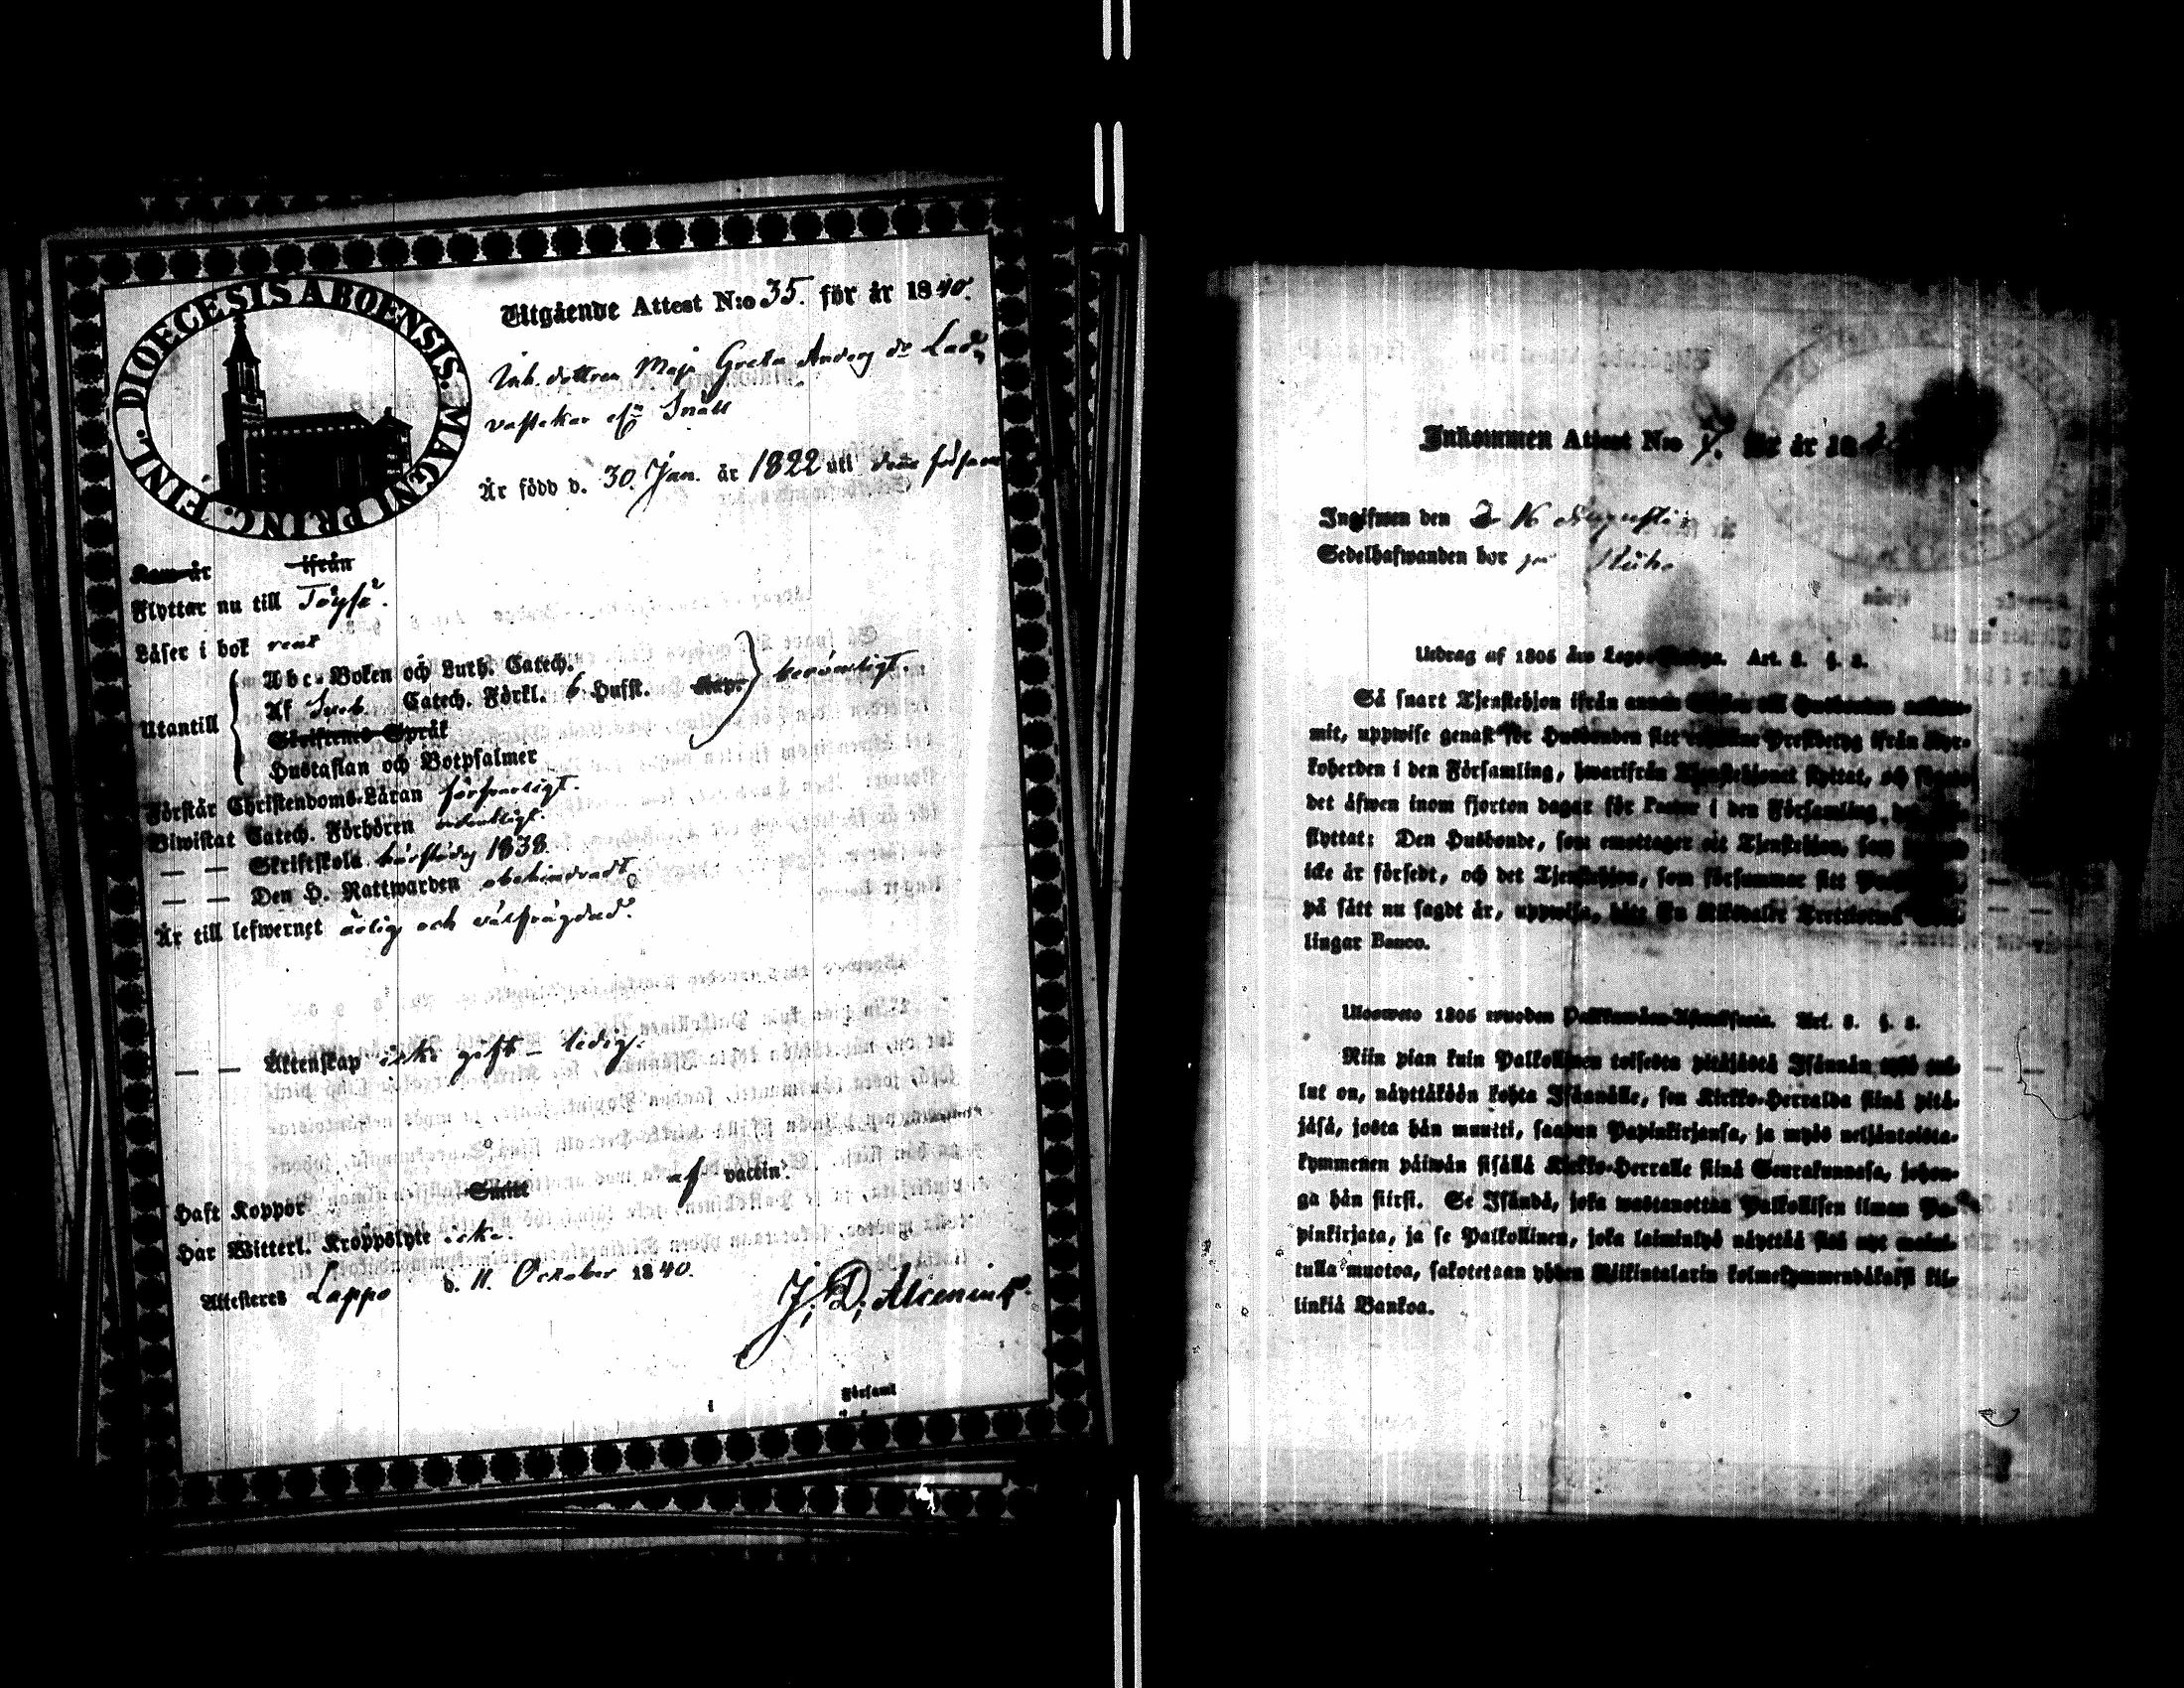 DIOECESIS ABOENSIS. MAGNI PRINC. FINL.
Utgående Attest N:o 35. för år 1840.
Inh. dottren Maja Greta Anders dr
Snåll
År född d. 30. Jan. år 1822 uti
Kom år ifrån
Flyttar nu till Töysä.
Låser i bok rent
Utantill
Abc-Boken och Luth. Catech.
Af Sveb. Catech. Förkl. 6 Husst. Kap. berömligt.
Skriftenes Språk
Hustaflan och Botpsalmer
Förstår Christendoms-Låran försvarligt.
Biwistat Catech. Förhören ordentligt.
— — Skriftskola härstädes 1838.
— — Den H. Nattwarden obehindradt
År till lefwernet ärlig och välfrägdad.
— — Åktenskap icke gift – ledig.
Haft Koppor Smitt af vaccin.
Har Witterl. Kroppslyte icke.
Attesteres Lappo d. 11. October 1840.
J. D. Alcenius.
Församl
Inkommen Attest N:o 7. för år 18
Ingifwen den 16 Augusti
Sedelhafwanden bor på
Utdrag af 1805 års Lego-Stadga. Art. 8. §. 8.
Så snart Tjenstehjon ifrån annan
mit, uppwise genast för Husbonden sitt Prestbetyg ifrån Kyr-
koherden i den Församling, hwarifrån Tjenstehjonet flyttat, och
det åfwen inom fjorton dagar för Pastor i den Församling,
flyttat: Den Husbonde, som emottager ett Tjenstehjon, som
icke år försedt, och det Tjenstehjon, som försummar sitt
på sått nu sagdt år, uppwisa, böte En Riksdaler Trettiotwå
lingar Banco.
Ulosweto 1805 wuoden Palkkawåen-Asetuksesta. Art. 8. §. 8.
Niin pian kuin Palkollinen toisesta pitäjästä Isännän tykö tul-
lut on, näyttäköön kohta Isännälle, sen Kirkko-Herralda siinä pitä-
jäsä, josta hän muutti, saadun Papinkirjansa, ja myös neljäntoista-
kymmenen päiwän sisällä Kirkko-Herralle siinä Seurakunnasa, johon-
ga hän siirsi. Se Isändä, joka wastanottaa Palkollisen ilman Pa-
pinkirjata, ja se Palkollinen, joka laiminlyö näyttää sitä nyt maini-
tulla muotoa, sakotetaan yhden Riikintalarin kolmekymmendäkaksi kil-
linkiä Bankoa.